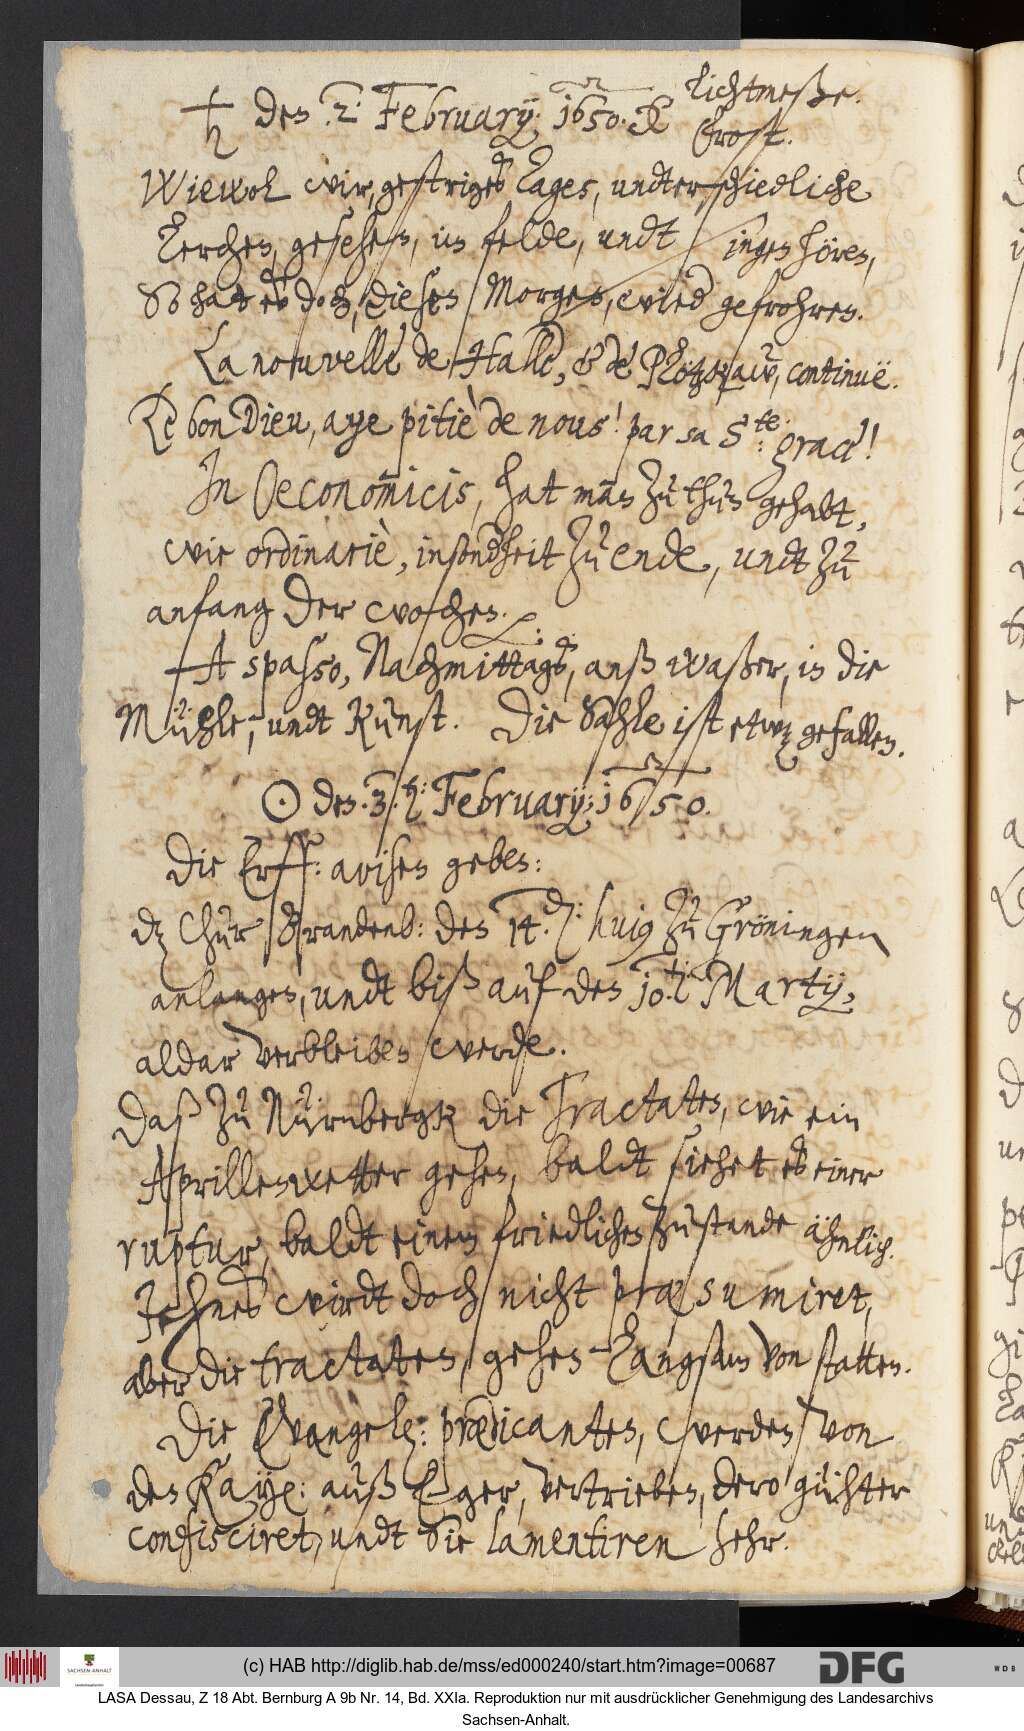 ♄ den 2: February: 1650. Lichtmeße.
Frost.
Wiewol wir, gestriges Tages, undterschiedliche
Lerchen, gesehen, im felde, undt singen hören,
So hat es doch, diesen Morgen, wied gefrohren.
La nouvelle de Halle, & de continuë.
Le bon Dieu, aye pitiè de nous! par sa Ste: grace!
In Oeconomicis, hat man zu thun gehabt,
wie ordinariè, insondheit zu ende, undt zu
anfang der wochen.
A spasso, Nachmittags, anß waßer, in die
Mühle, undt Kunst. Die Sahle ist etwz gefallen.
☉ den 3. February: 1650.
Die Erff: avisen geben:
dz Chur Brandenb: den 14. huius zu Gröningen
anlangen, undt biß auf den 10. Martij,
aldar verbleiben werde.
Daß zu Nürnbergk die Tractaten, wie ein
Aprillenwetter gehen, baldt siehet es einer
ruptur, baldt einem friedlichen zustande ähnlich.
Jehnes wirdt doch nicht præsumiret,
aber die tractaten, gehen Langsam von statten.
Die Evangel: prædicanten, werden von
den Kaye: auß Eger, vertrieben, dero gühter
confisciret, undt Sie lamentiren sehr.
SACHSEN-ANHALT
(c) HAB http://diglib.hab.de/mss/ed000240/start.htm?image=00687
DFG
WDB
LASA Dessau, Z 18 Abt. Bernburg A 9b Nr. 14, Bd. XXIa. Reproduktion nur mit ausdrücklicher Genehmigung des Landesarchivs
Sachsen-Anhalt.